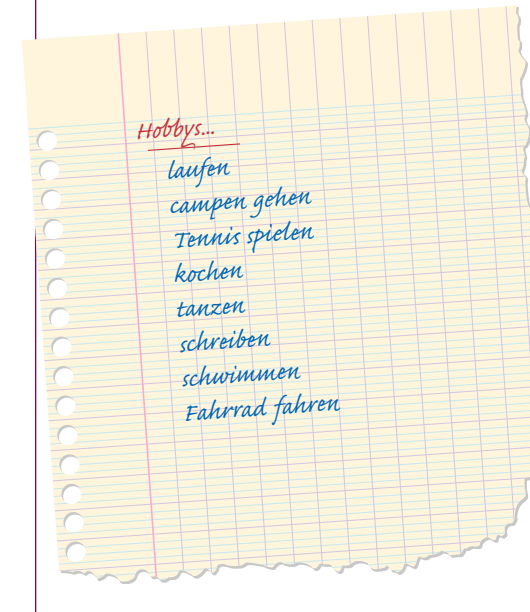 Hobbys...
laufen
campen gehen
Tennis spielen
kochen
tanzen
schreiben
schwimmen
Fahrrad fahren